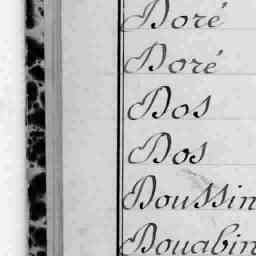 Doré
Doré
Dos
Dos
Doussin
Douabin